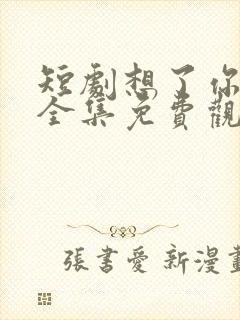 短劇想了你
全集免費觀
張書愛 新漫畫